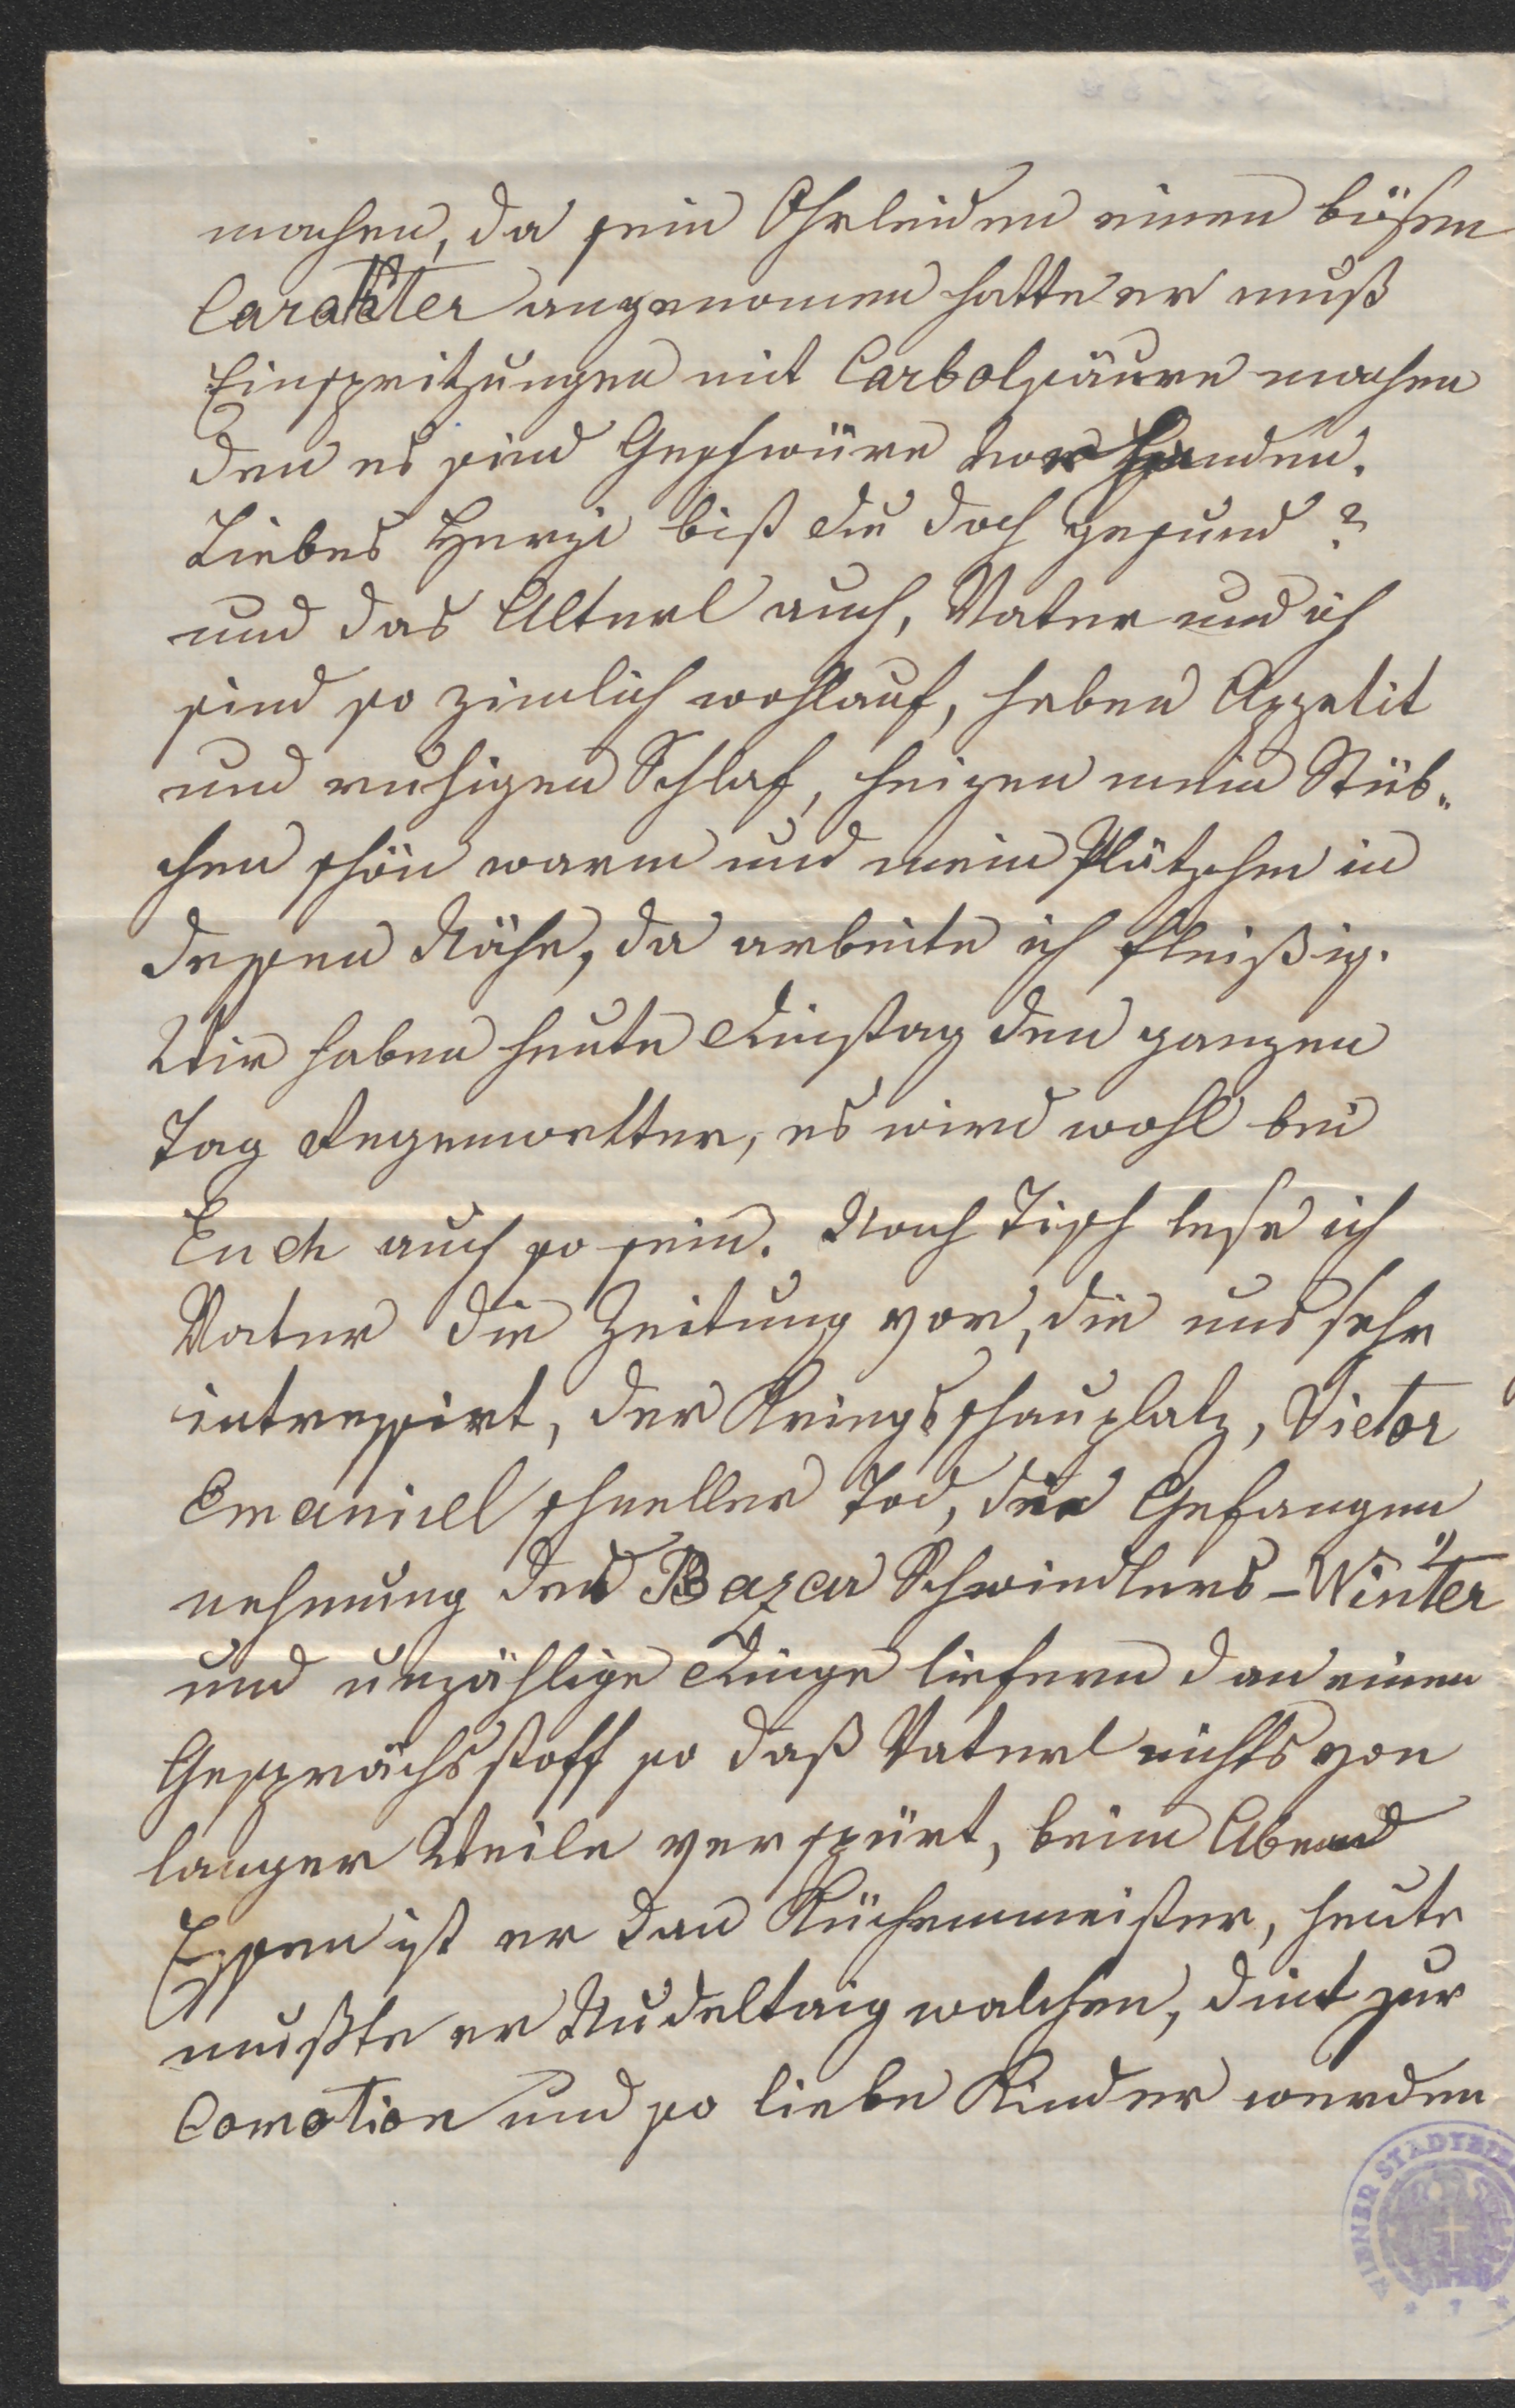 machen, da sein Ohrleiden einen bösen
Carakter angenomen hatte er muß
Einspritzungen mit Carbolsäure machen
den es sind Geschwüre vorhanden.
Liebes Herzi bist du doch gesund?
und das Alterl auch, Vater und ich
sind so zimlich wohlauf, haben Appetit
und ruhigen Schlaf, heizen mein Stüb„
chen schön warm und mein Plätzchen in
dessen Nähe, da arbeite ich fleißig.
Wir haben heute Dinstag den ganzen
Tag Regenwetter, es wird wohl bei
Euch auch so sein. Nach Tisch lese ich
Vater die Zeitung vor, die uns sehr
intressirt, der Kriegsschauplatz, Victor
Emanuel schneller Tod, die Gefangen
nehmung des Bazar Schwindlers-Winter
und unzählige Dinge liefern dan einen
Gesprächsstoff so daß Vaterl nichts von
langer Weile verspürt, beim Abend
Essen ist er dan Küchenmeister, heute
mußte er Nudeltaig walchen, dint zur
Comotion und so liebe Kinder werden
WIENER STADTBI
* 7 *